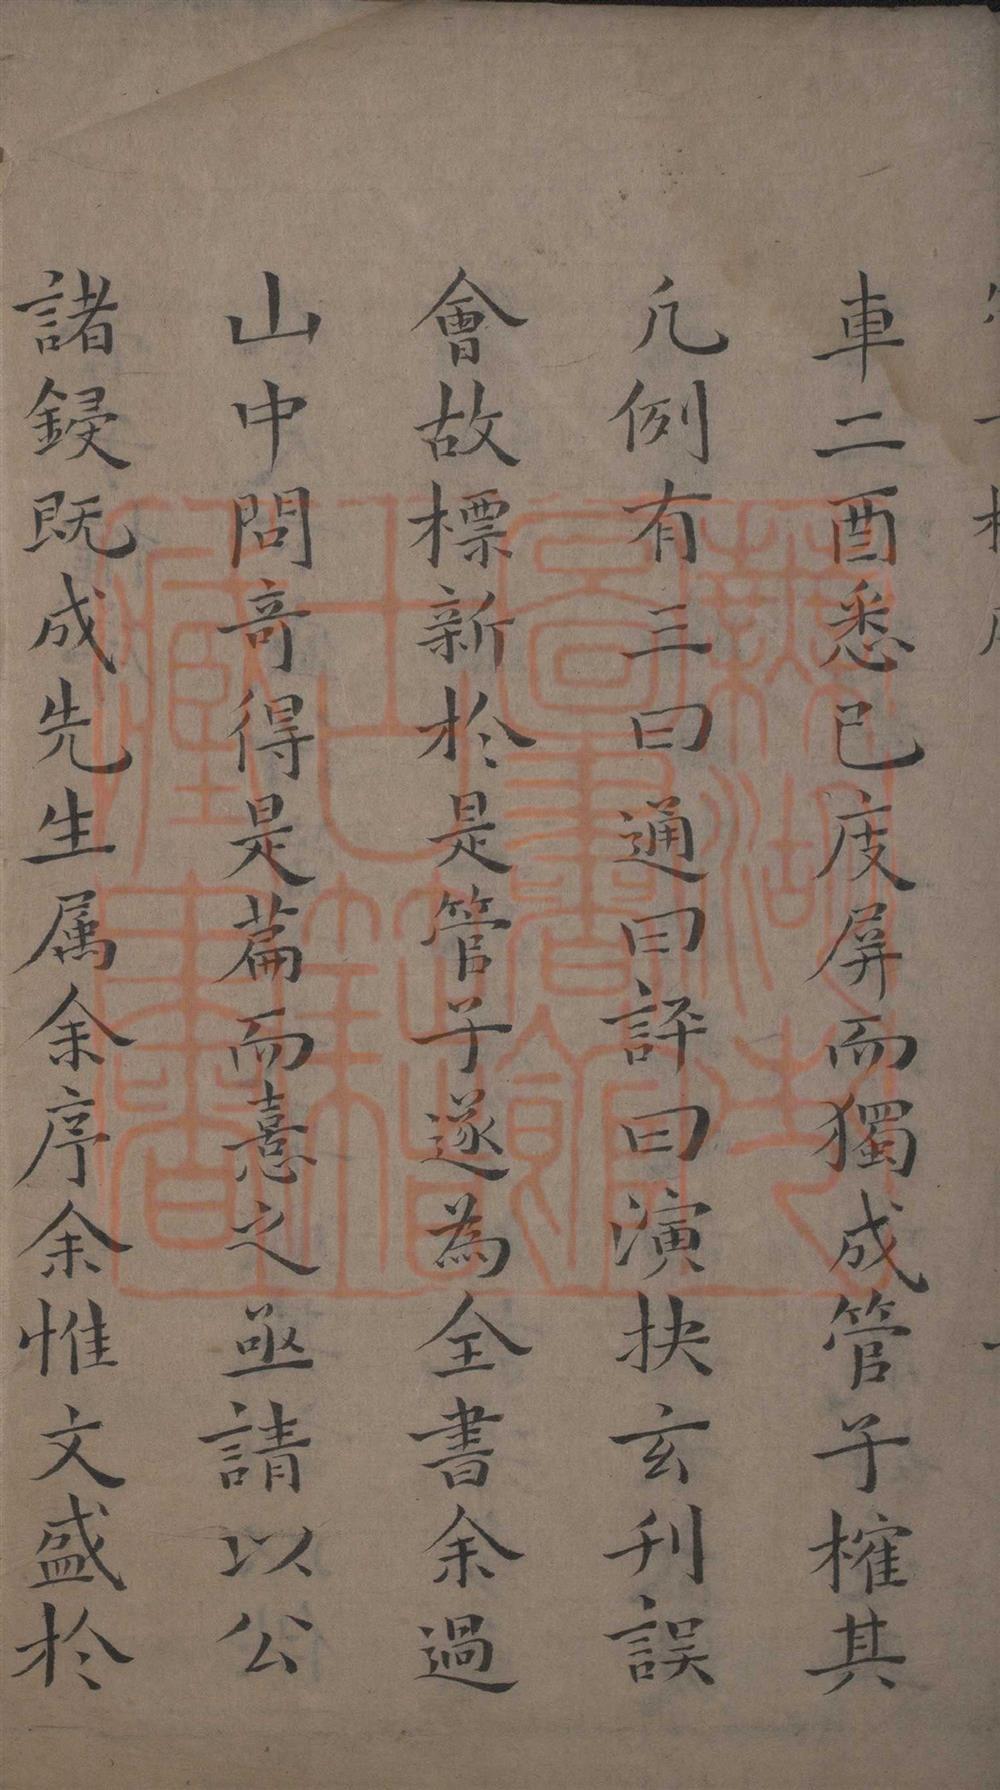 車二酉悉已庋屏而獨成管子榷其
凡例有三曰通曰評曰演抉玄刋誤
會故標新於是管子遂為全書余過
山中問奇得是萹而憙之亟請以公
諸鋟既成先生属余序余惟文盛於